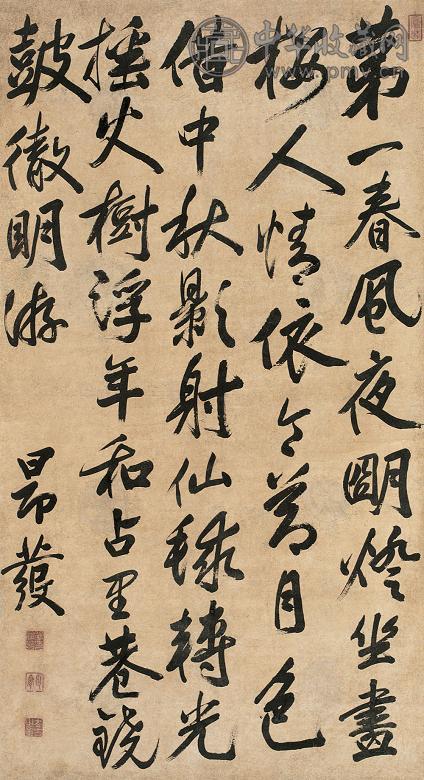 中华收藏网
www.pmv.cn
第一春風夜朙燈坐畫
樓人情依令節月色
借中秋影射仙毬轉光
搖火樹浮年和占里巷鐃
鼓徹明游
昂發